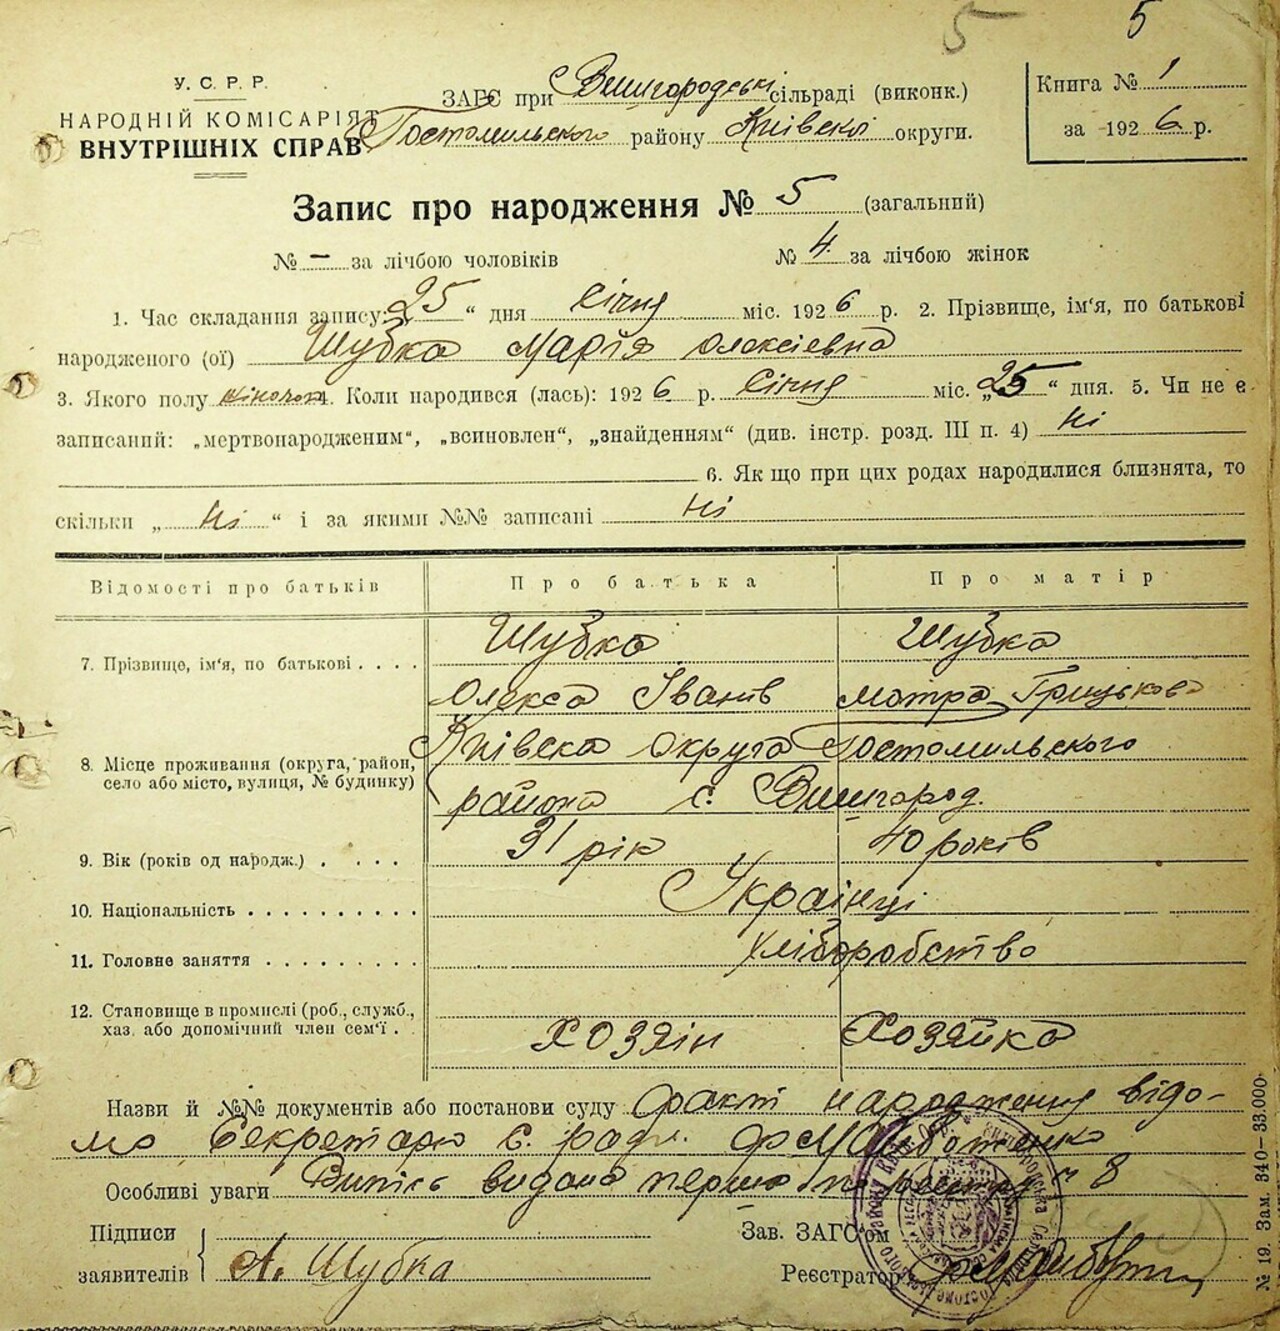 5 5
У. С. Р. Р.
НАРОДНІЙ КОМІСАРІЯТ
ВНУТРІШНІХ СПРАВ
ЗАГС при Вишгородські сільраді (виконк.)
Гостомильского району Київскої округи.
Книга № 1
за 1926 р.
Запис про народження № 5 (загальний)
№ – за лічбою чоловіків № 4 за лічбою жінок
1. Час складання запису: „25“ дня Січня міс. 1926 р. 2. Прізвище, ім'я, по батькові
народженого (ої) Шубка Марія Олексієвна
3. Якого полу жіночог 4. Коли народився (лась): 1926 р. Січня міс. „25“ дня. 5. Чи не є
записаний: „мертвонародженим“, „всиновлен“, „знайденням“ (див. інстр. розд. III п. 4) Ні
6. Як що при цих родах народилися близнята, то
скільки „Ні“ і за якими №№ записані Ні
Відомості про батьків Про батька Про матір
7. Прізвище, ім'я, по батькові . . . . Шубка Шубка
Олекса Іванів Мотра Грицькова
8. Місце проживання (округа, район, село або місто, вулиця, № будинку) Київска округа Гостомильского
района с. Вишгород.
9. Вік (років од народж.) . . . . 31 рік 40 років
10. Національність . . . . . . . . . . Українці
11. Головне заняття . . . . . . . . . Хліборобство
12. Становище в промислі (роб., служб.,
хаз. або допомічний член сем'ї . Хозяін Хозяйка
Назви й №№ документів або постанови суду Факт народження відо-
мо Секретарю с. ради.
Особливі уваги Випісь видана перша по реєстру № 8
Підписи
заявителів А. Шубка
Зав. ЗАГС'ом
Реєстратор
№ 19. Зам. 340–33.000